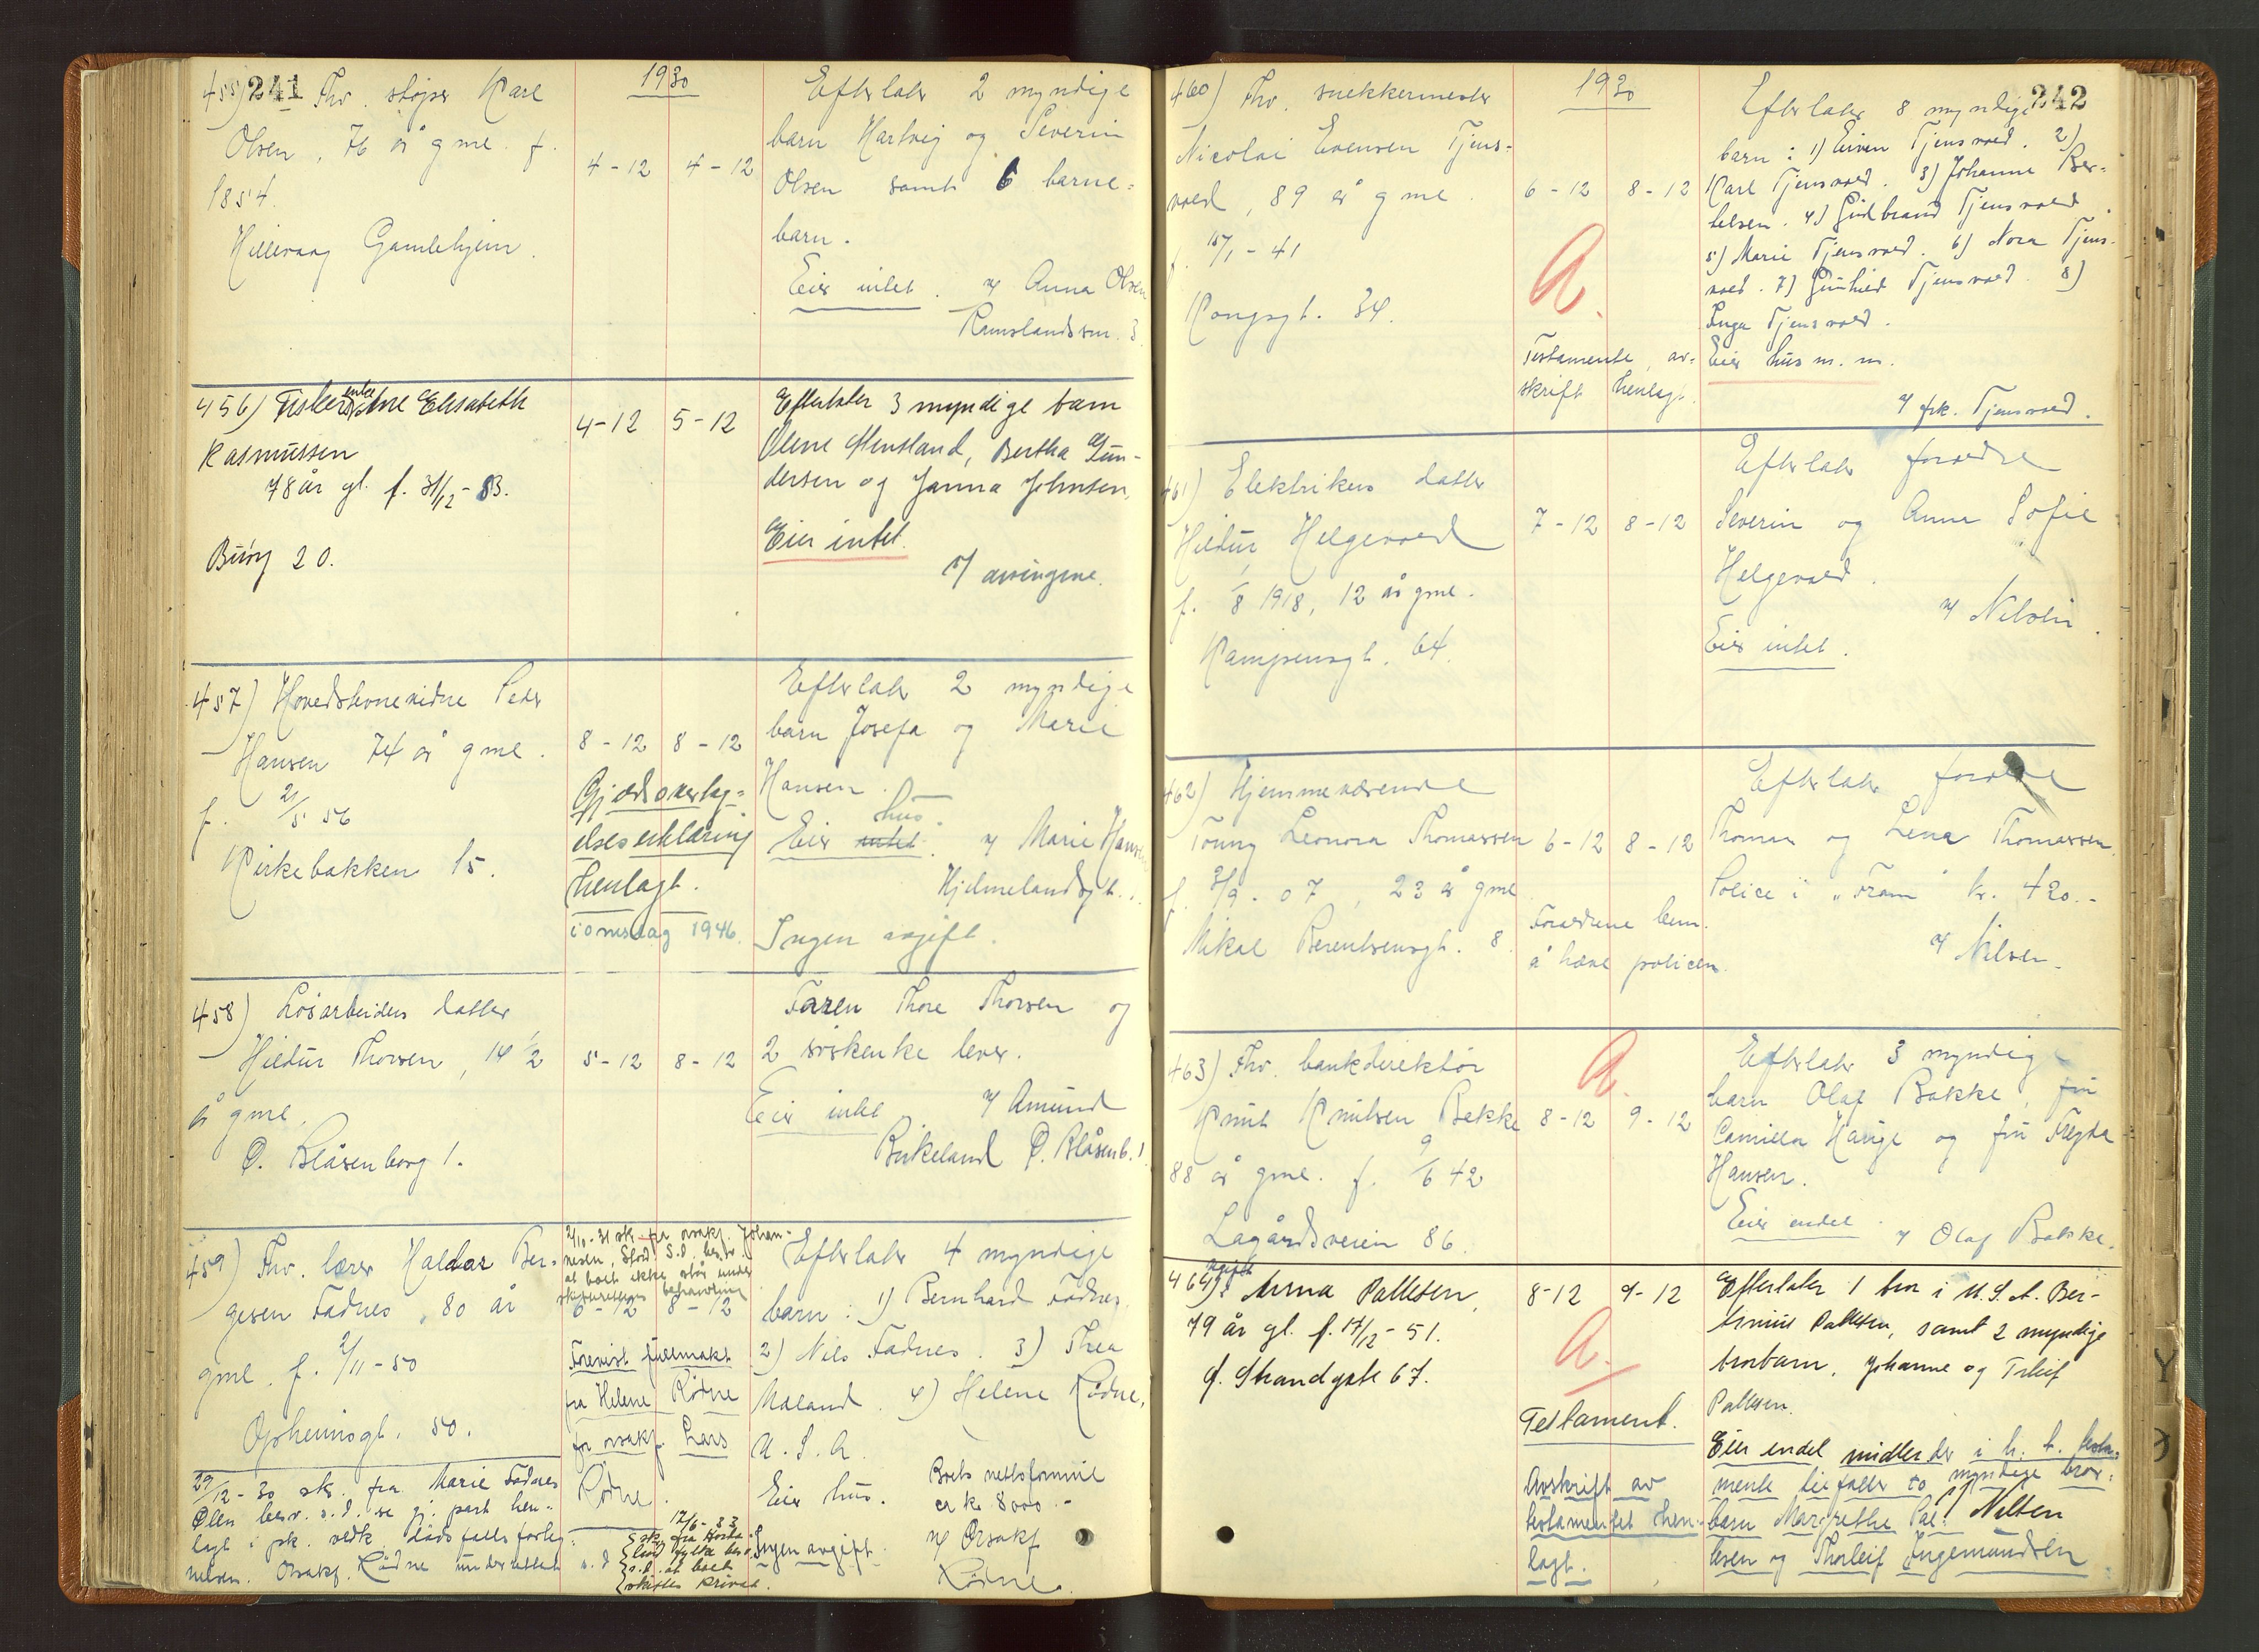 241
1930
455) Fhv. støper Karl
Olsen, 76 år gml. f.
1854.
Hillevaag Gamlehjem.
4-12 4-12
Efterlater 2 myndige
barn Hartvig og Severin
Olsen samt 6 barne=
barn.
Eier intet. v/ Anna Olsen
Ramslandsvn. 3
456) Fisker enke Ane Elisabeth
Rasmussen
78 år gl. f. 31/12-53.
Buøy 20.
4-12 5-12
Efterlater 3 myndige barn
Olene Skustand, Bertha Gun-
dersen og Janna Johnsen.
Eier intet.
v/ arvingene.
457) Hovedstevnevidne Peder
Hansen 74 år gml.
f. 21/5 56
Kirkebakken 15.
8-12 8-12
Gjeldsovertag=
elseserklæring
henlagt.
i omslag 1946.
Efterlater 2 myndige
barn Josefa og Marie
Hansen.
hus.
Eier intet. v/ Marie Hansen
Hjelmelandsgt.
Ingen avgift.
458) Løsarbeiders datter
Hildur Thorsen, 14 1/2
år gml.
Ø. Blåsenborg 1.
5-12 8-12
Faren Thore Thorsen og
2 søskenke lever.
Eier intet v/ Amund
Birkeland Ø. Blåsenb. 1
459) Fhv. lærer Haldor Ber=
gesen Fadnes, 80 år
gml. f. 2/11-50
Opheimsgt. 50.
29/12-30 skr. fra Marie Fadnes
Ølen besv. s.d. se gj. part hen=
lagt i pk. vedk. dødsfalls forteg
nelsen. Orsakf. Rødne underrettet s.d
2/10-31 skr. fra orsakf. Johan-
nesen, Sfjord. S.d. besv.
at boet ikke står under
skifterettens behandling
6-12 8-12
Forevist fullmakt
fra Helene Rødne
for orsakf. Lars
Rødne.
17/6-33
skr. fra Horda-
land fylke besv.
s.d. at boet
skiftes privat.
Efterlater 4 myndige
barn: 1) Bernhard Fadnes
2) Nils Fadnes. 3) Thea
Maland. 4) Helene Rødne,
U.S.A.
Eier hus. Boets nettoformue
ca kr. 8000.-
Ingen avgift. v/ Orsakf
Rødne.
242
1930
460) Fhv. snekkermester
Nicolai Evensen Tjens=
vold, 89 år gml.
f. 15/1-41
Kongsgt. 34.
6-12 8-12
A.
Testamente, av=
skrift henlagt.
Efterlater 8 myndige
barn: 1) Eiven Tjensvold. 2)
Karl Tjensvold. 3) Johanne Ber=
telsen. 4) Gudbrand Tjensvold
5) Marie Tjensvold. 6) Nora Tjens-
vold. 7) Gunhild Tjensvold. 8)
Inga Tjensvold.
Eier hus m. m.
v/ frk. Tjensvold.
461) Elektrikers datter
Hildur Helgevold
f. 1/8 1918, 12 år gml.
Kampensgt. 64.
7-12 8-12
Efterlater foreldre
Severin og Anna Sofie
Helgevold.
v/ Nilsen.
Eier intet.
462) Hjemmeværende
Tonny Leonora Thomassen
f. 3/9-07, 23 år gml
Mikal Berentsensgt. 8.
6-12 8-12
Foreldrene bem.
å hæve policen.
Efterlater foreldre
Thomas og Lena Thomassen.
Police i "Fram" kr. 420.-
v/ Nilsen.
463) Fhv. bankdirektør
Knut Knutsen Bakke
88 år gml. f. 9/6 42
Lagårdsveien 86.
A.
8-12 9-12
Efterlater 3 myndige
barn Olaf Bakke, fru
Camilla Hauge og fru Frejda
Hansen.
Eier endel. v/ Olaf Bakke.
464) ugift Anna Pallesen,
79 år gl. f. 17/12-51.
Ø. Strandgate 67.
8-12 9-12
A.
Testament.
Avskrift av
testamentet hen-
lagt.
Efterlater 1 bror i U.S.A. Ber-
tinius Pallesen, samt 2 myndige
brorbarn, Johanne og Trleif
Pallesen.
Eier endel midler der i h. t. testa-
mente tilfaller to myndige bror=
barn Margrethe Pal= v/ Nilsen
lesen og Thorleif Ingemundsen